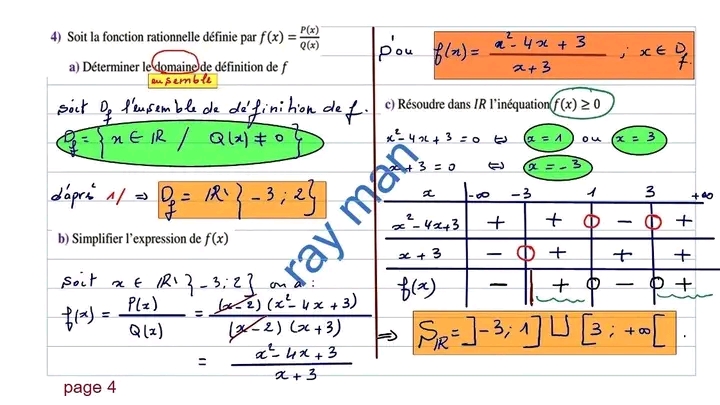 4) Soit la fonction rationnelle définie par f(x) = P(x)/Q(x)
a) Déterminer le domaine de définition de f
ensemble
soit D_f l'ensemble de définition de f.
D_f = { x ∈ IR / Q(x) ≠ 0 }
d'après 1/ ⇒ D_f = IR \ { -3 ; 2 }
b) Simplifier l'expression de f(x)
soit x ∈ IR \ { -3 ; 2 } on a :
f(x) = P(x)/Q(x) = (x-2)(x²-4x+3)/(x-2)(x+3)
= x²-4x+3/x+3
page 4
D'où f(x) = x²-4x+3/x+3 ; x ∈ D_f
c) Résoudre dans IR l'inéquation f(x) ≥ 0
x²-4x+3 = 0 ⇔ x = 1 ou x = 3
x+3 = 0 ⇔ x = -3
x -∞ -3 1 3 +∞
x²-4x+3 + + 0 - 0 +
x+3 - 0 + + +
f(x) - | + 0 - 0 +
⇒ S_IR = ]-3 ; 1] ⋃ [3 ; +∞[ .
ray man